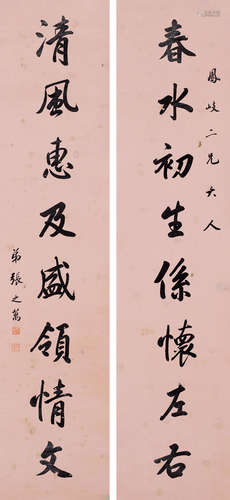 鳳岐二兄大人
春水初生係懷左右
清風惠及盛領情文
弟張之萬